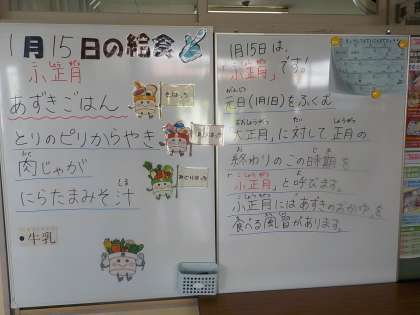 1月15日の給食
小正月
あずきごはん
とりのピリからやき
肉じゃが
にく
にらたまみそ汁
しる
•牛乳
1月15日は、
「小正月」です!
元日(1月1日)をふくむ
「大正月」に対して正月の
終わりのこの時期を
「小正月」と呼びます。
小正月にはあずきのおかゆを
食べる風習があります。